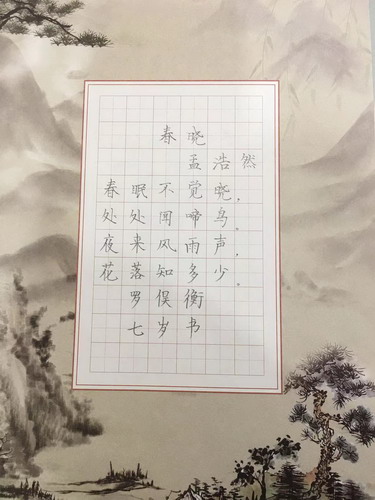 春晓
孟浩然
春眠不觉晓，
处处闻啼鸟。
夜来风雨声，
花落知多少。
罗俣衡
七岁书